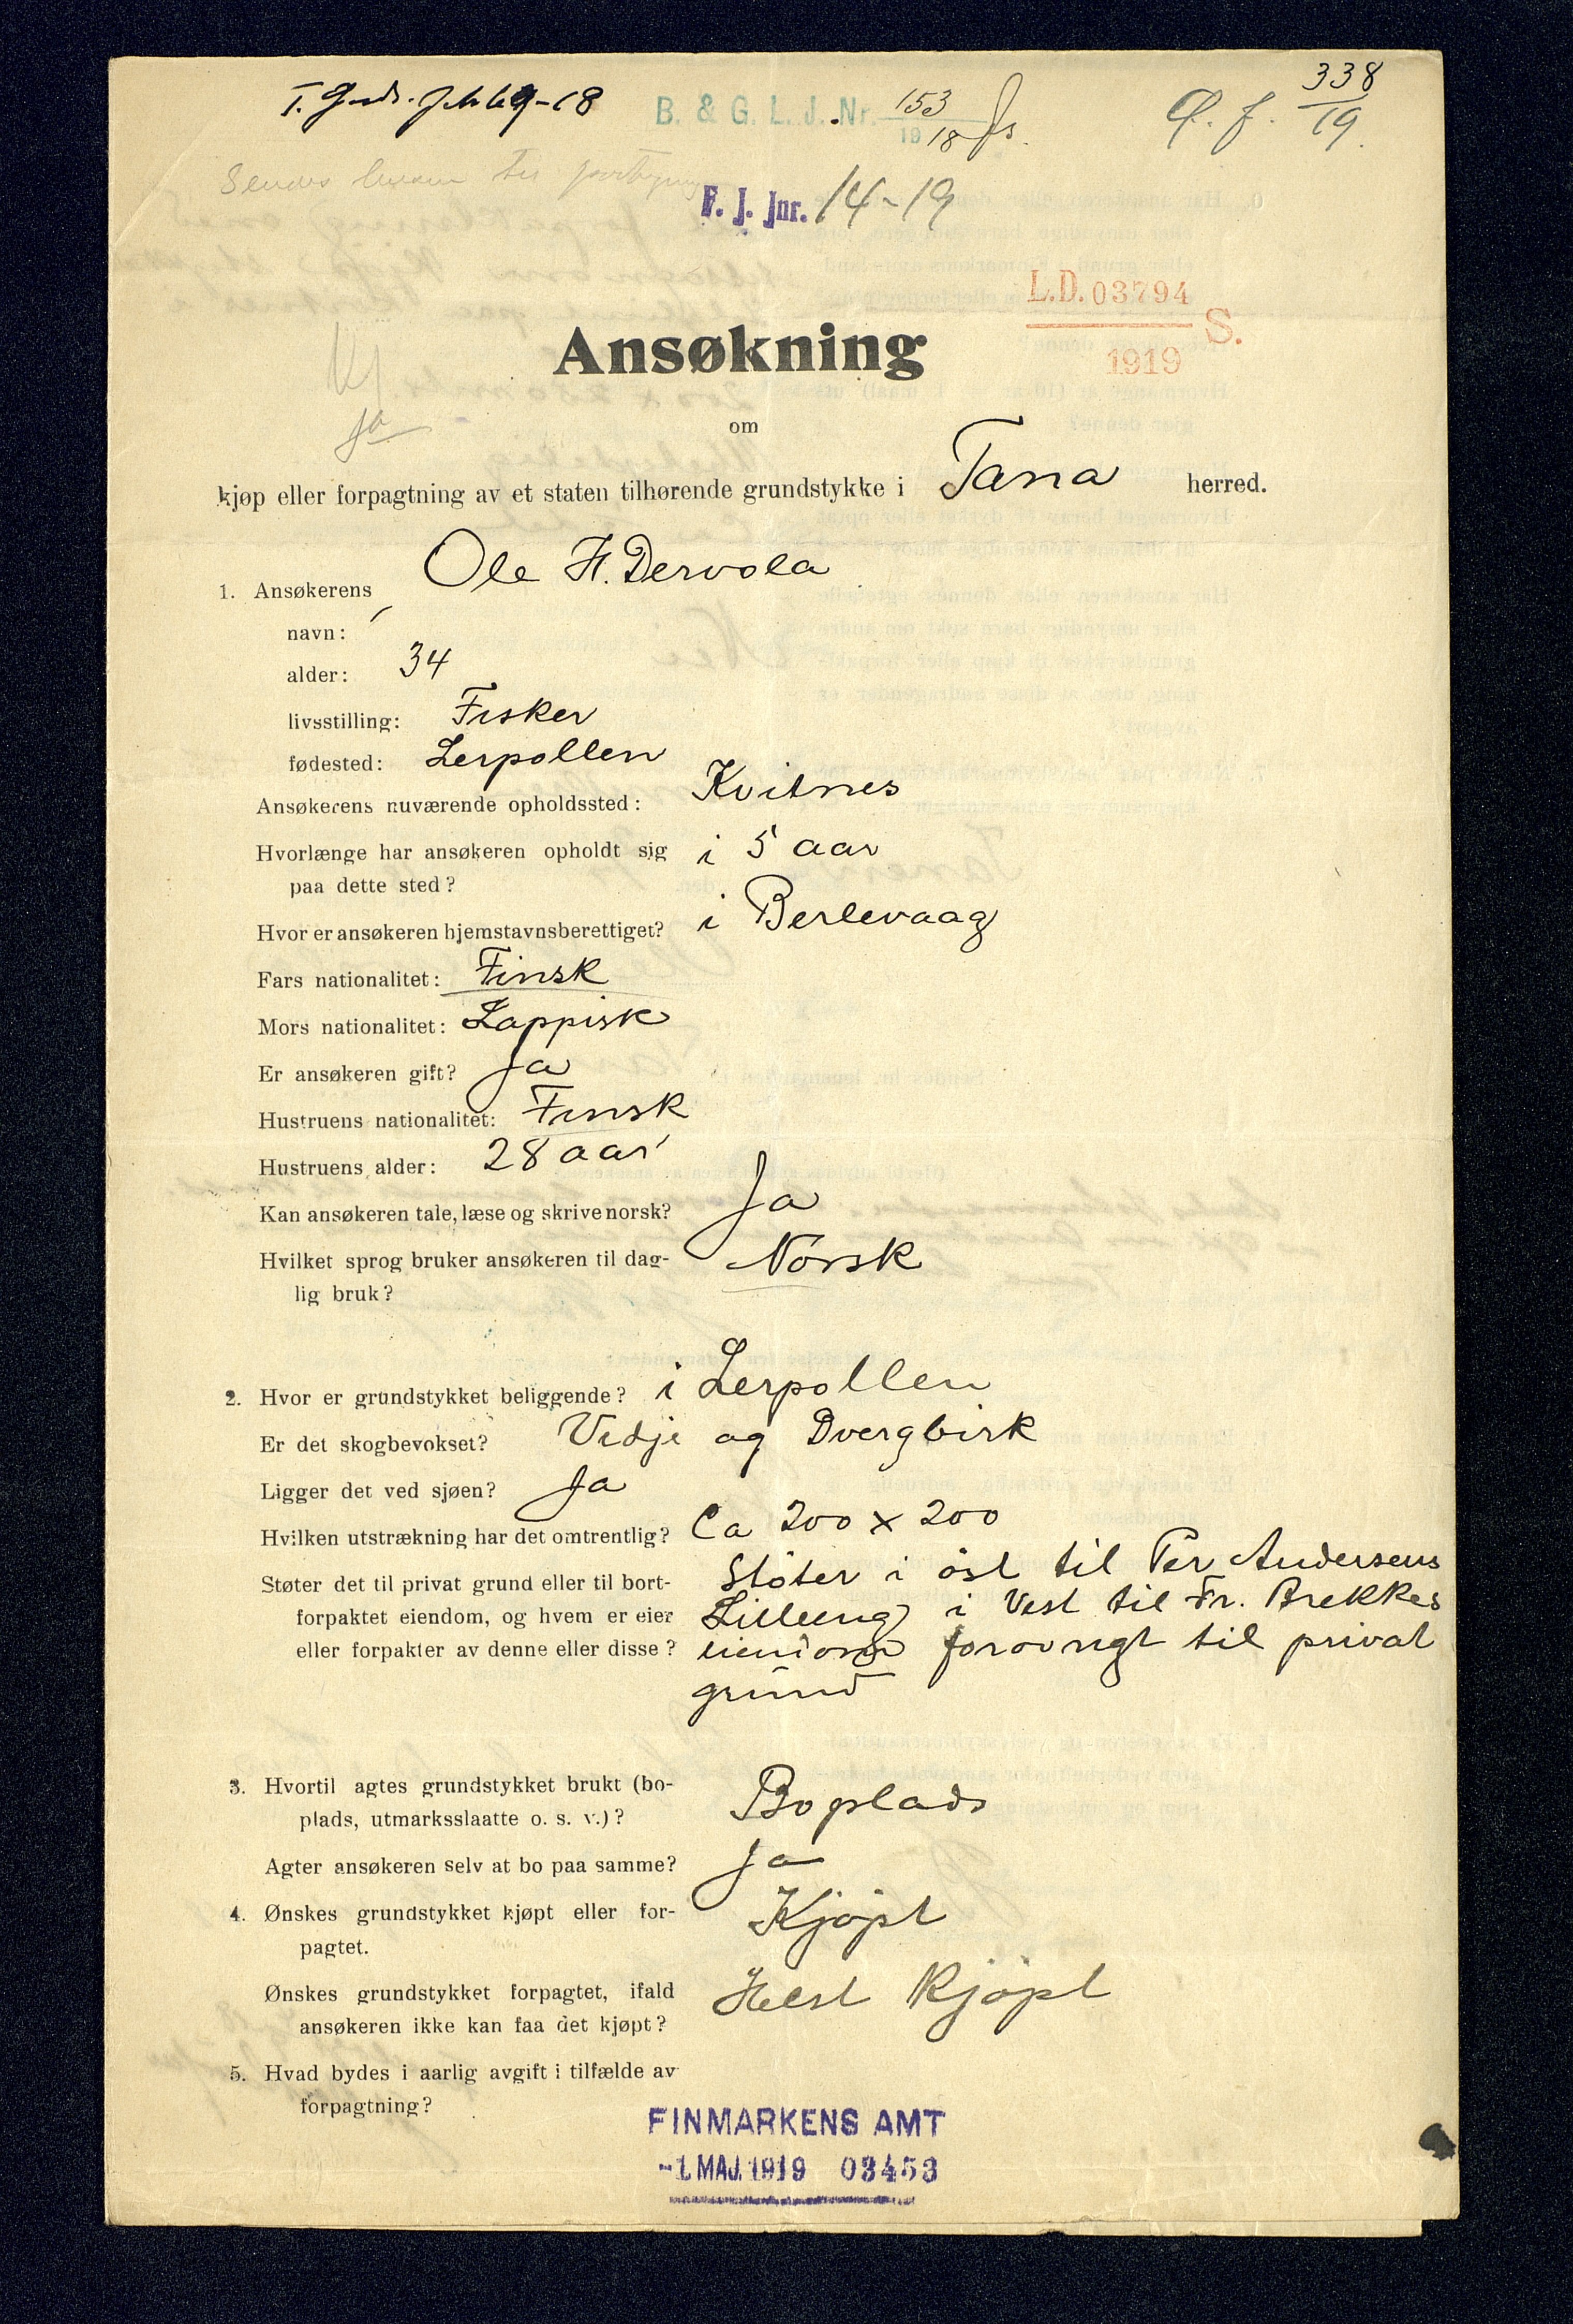 B. & G. L. J. Nr. 153
19 18
338
19
F. J. Jnr. 14-19
L.D. 03794 S.
1919
Ansøkning
ja
om
kjøp eller forpagtning av et staten tilhørende grundstykke i Tana herred.
Ole H. Dervola
1. Ansøkerens
navn:
alder: 34
livsstilling: Fisker
fødested: Lerpollen
Ansøkerens nuværende opholdssted: Kvitnes
Hvorlænge har ansøkeren opholdt sig i 5 aar
paa dette sted?
Hvor er ansøkeren hjemstavnsberettiget? i Berlevaag
Fars nationalitet: Finsk
Mors nationalitet: Lappisk
Er ansøkeren gift? Ja
Hustruens nationalitet: Finsk
Hustruens alder: 28 aar
Kan ansøkeren tale, læse og skrive norsk? Ja
Hvilket sprog bruker ansøkeren til dag- Norsk
lig bruk?
2. Hvor er grundstykket beliggende? i Lerpollen
Er det skogbevokset? Vidje og Dvergbirk
Ligger det ved sjøen? Ja
Hvilken utstrækning har det omtrentlig? Ca 200 x 200
Støter det til privat grund eller til bort- Støter i øst til Per Andersens
forpaktet eiendom, og hvem er eier Lilleeng i Vest til Fr. Brekkes
eller forpakter av denne eller disse? eiendom forøvrigt til privat
grund
3. Hvortil agtes grundstykket brukt (bo- Boplads
plads, utmarksslaatte o. s. v.)?
Agter ansøkeren selv at bo paa samme? Ja
4. Ønskes grundstykket kjøpt eller for- Kjøpt
pagtet.
Ønskes grundstykket forpagtet, ifald Helst kjøpt
ansøkeren ikke kan faa det kjøpt?
5. Hvad bydes i aarlig avgift i tilfælde av
forpagtning?
FINMARKENS AMT
-1. MAJ. 1919 03453